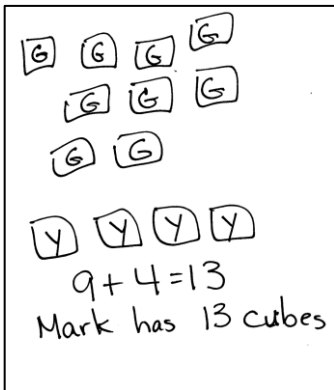 G G G G
G G G
G G
Y Y Y Y
9+4=13
Mark has 13 cubes